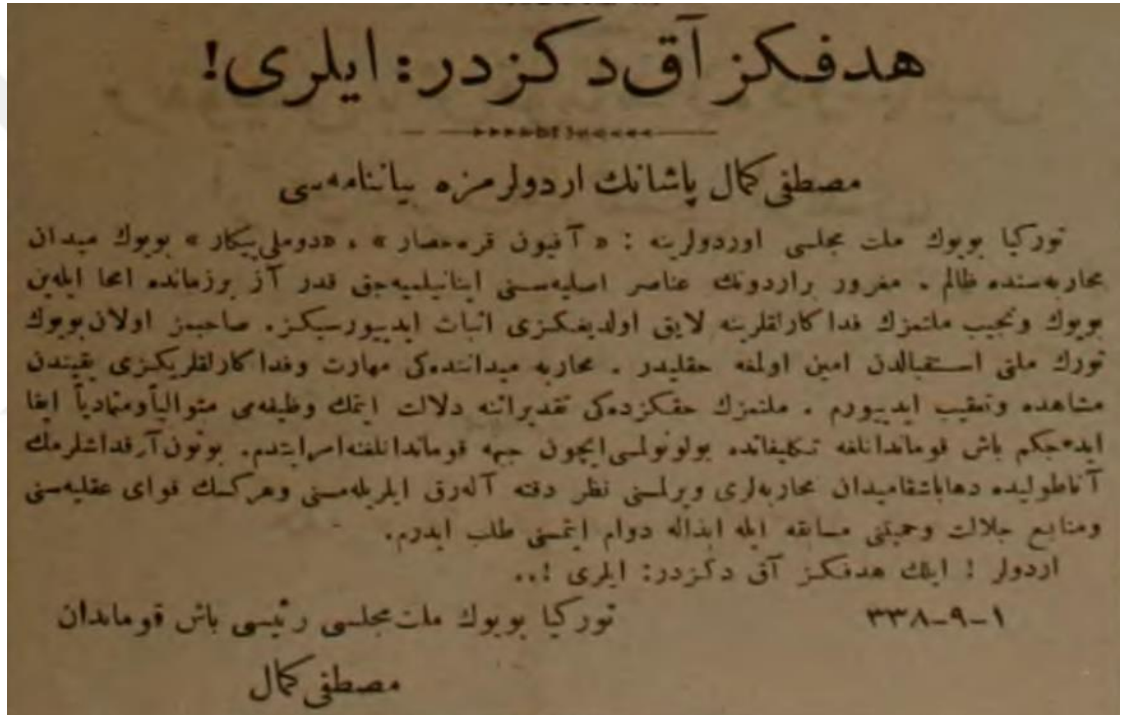 هدفكز آق دكزدر: ايلرى!
مصطفى كمال پاشانك اردولرمزه بياننامه‌سى
توركيا بويوك ملت مجلسى اوردولرينه : « آفيون قره‌حصار » ، «دوملى‌پيكار » بويوك ميدان
محاربه‌سنده ظالم . مغرور براردونك عناصر اصليه‌سنى اينانيلميه‌جق قدر آز برزمانده امحا ايله‌ين
بويوك ونجيب ملتمزك فداكارلقلرينه لايق اولديغكزى اثبات ايدييورسيكز. صاحبمز اولان بويوك
تورك ملتى استقبالدن امين اولمغه حقليدر . محاربه ميداننده‌كى مهارت وفداكارلقلريكزى يقيندن
مشاهده وتعقيب ايدييورم . ملتمزك حقكزده‌كى تقديراتنه دلالت ايتمك وظيفه‌مى متوالياً ومتمادياً ايفا
ايده‌جكم باش قوماندانلغه تكليفاتده بولونولسى ايچون جبهه قوماندانلغنه امر ايتدم. بوتون آرقداشلرمك
آناطوليده دها باشقا ميدان محاربه‌لرى ويرلسنى نظر دقته آله‌رق ايلريله‌مسنى وهركسك قواى عقليه‌سنى
ومنابع جلالت وحميتنى مسابقه ايله ابذاله دوام ايتمسنى طلب ايدرم.
اردولر ! ايلك هدفكز آق دكزدر: ايلرى !..
١-٩-٣٣٨
توركيا بويوك ملت مجلسى رئيسى باش قوماندان
مصطفى كمال